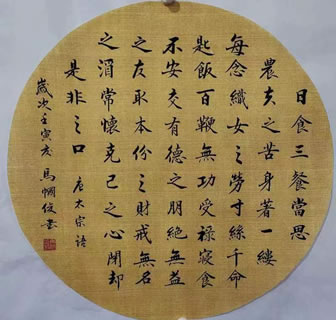 日食三餐當思
農夫之苦身著一縷
每念織女之勞寸絲千命
匙飯百鞭無功受祿寢食
不安交有德之朋絕無益
之友取本份之財戒無名
之酒常懷克己之心閉却
是非之口 唐太宗語
歲次壬寅亥馬幗俊書